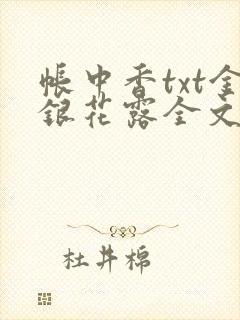 帳中香txt金
銀花露全文
杜井棉